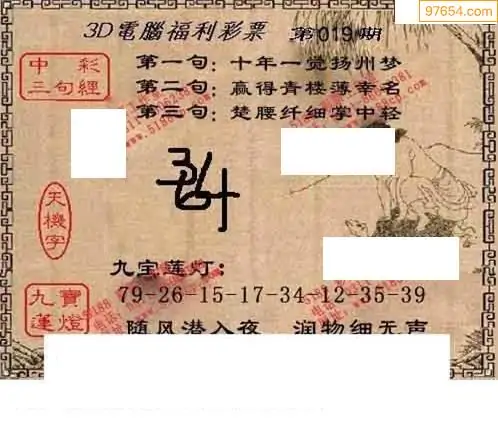 97654.com
3D電腦福利彩票 第019期
中彩
三句經
第一句：十年一觉扬州梦
第二句：赢得青楼薄幸名
第三句：楚腰纤细掌中轻
天機字
九宝莲灯：
九寶
蓮燈
79-26-15-17-34 12-35-39
随风潜入夜 润物细无声